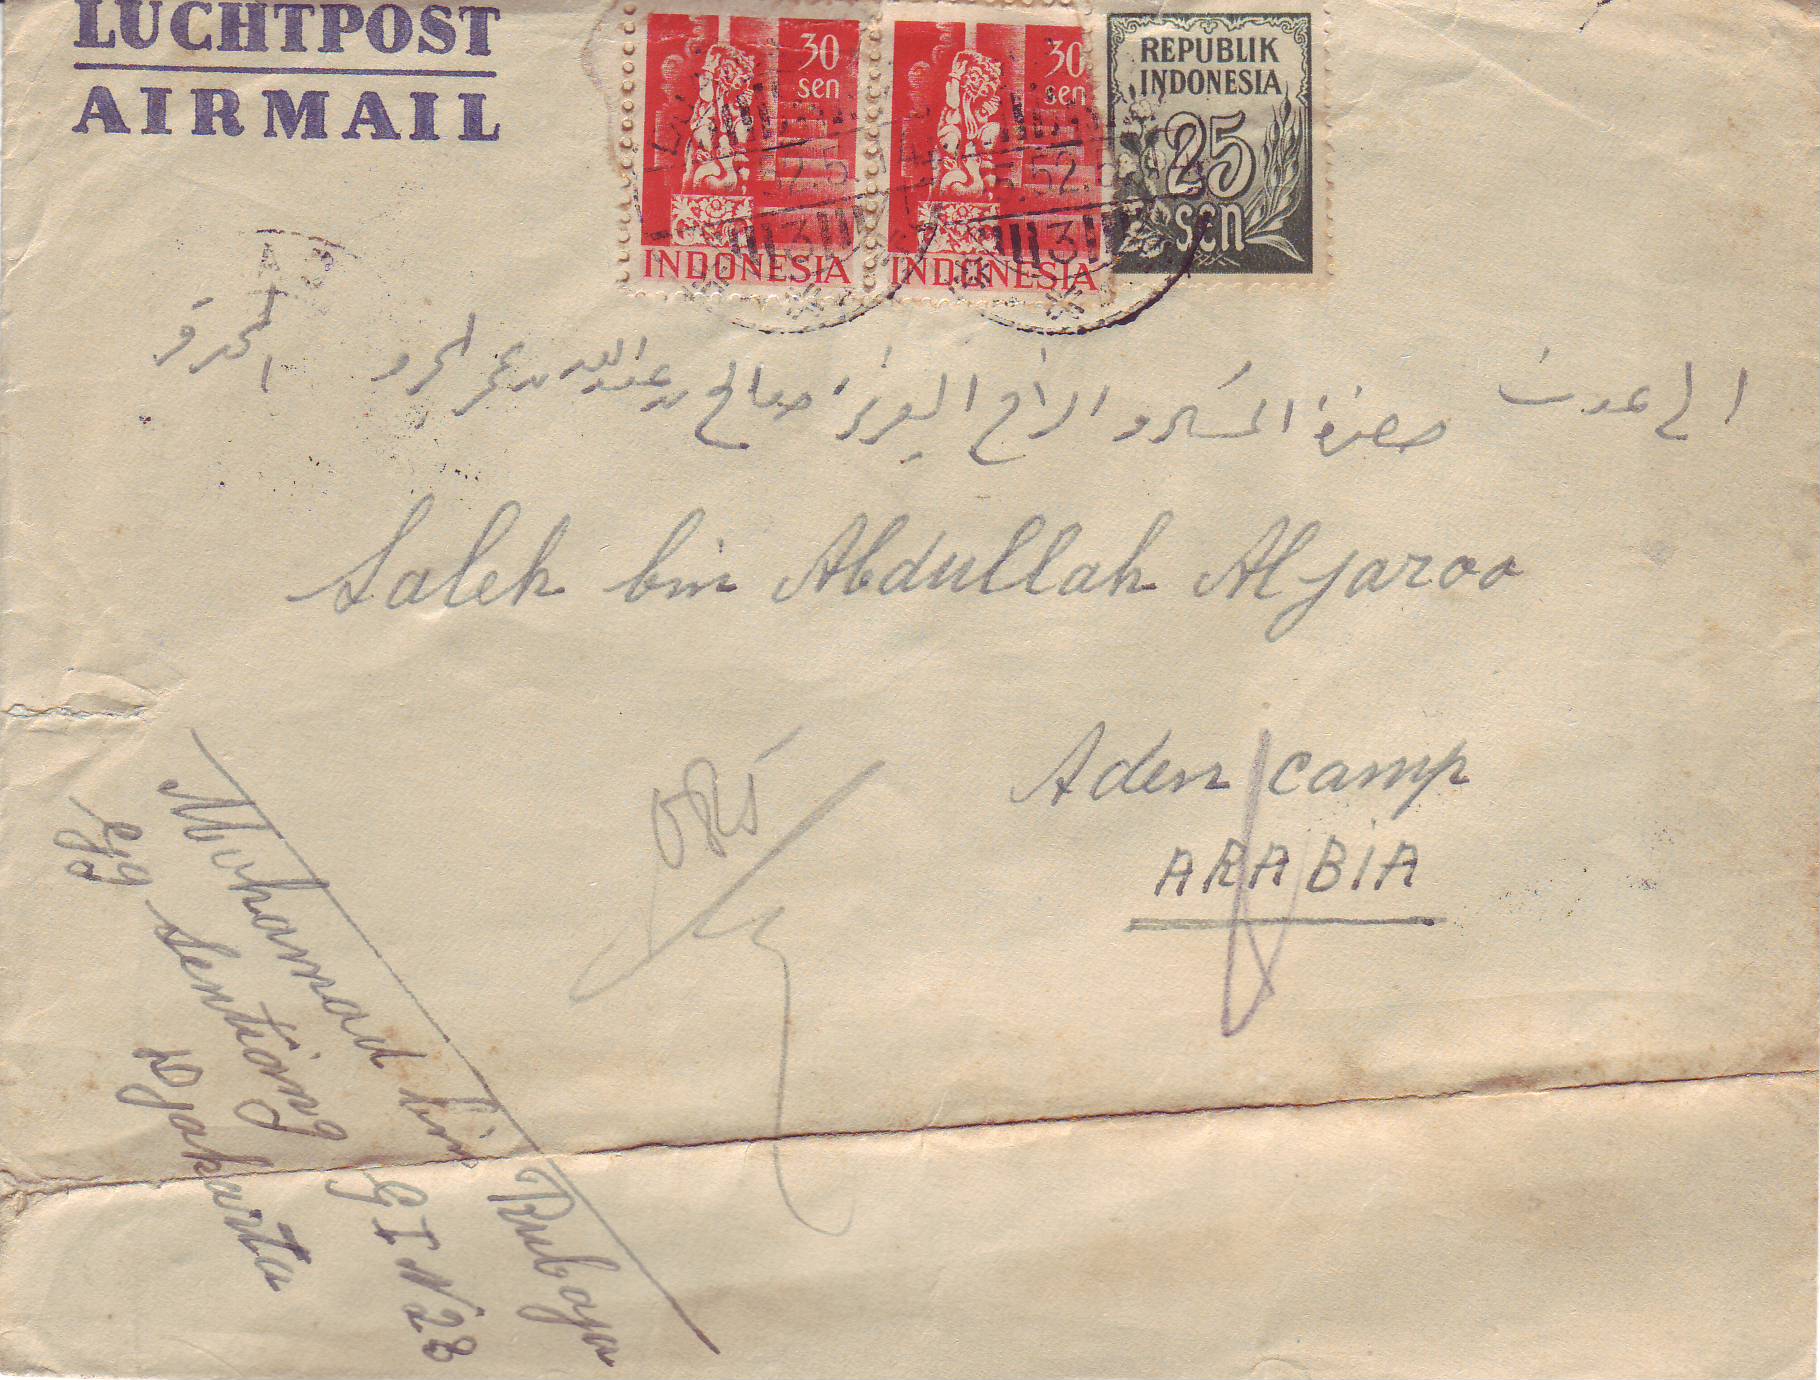 LUCHTPOST
AIRMAIL
30
sen
INDONESIA
30
sen
INDONESIA
REPUBLIK
INDONESIA
25
sen
52.5
3
.52.
3
الى عدن حضرة المكرم الاخ العزيز صالح بن عبدالله بن عمر
Saleh bin Abdullah Aljaroo
Aden camp
ARABIA
Mohamad bin Rubaja
Sentiong GI N 23
Djakarta